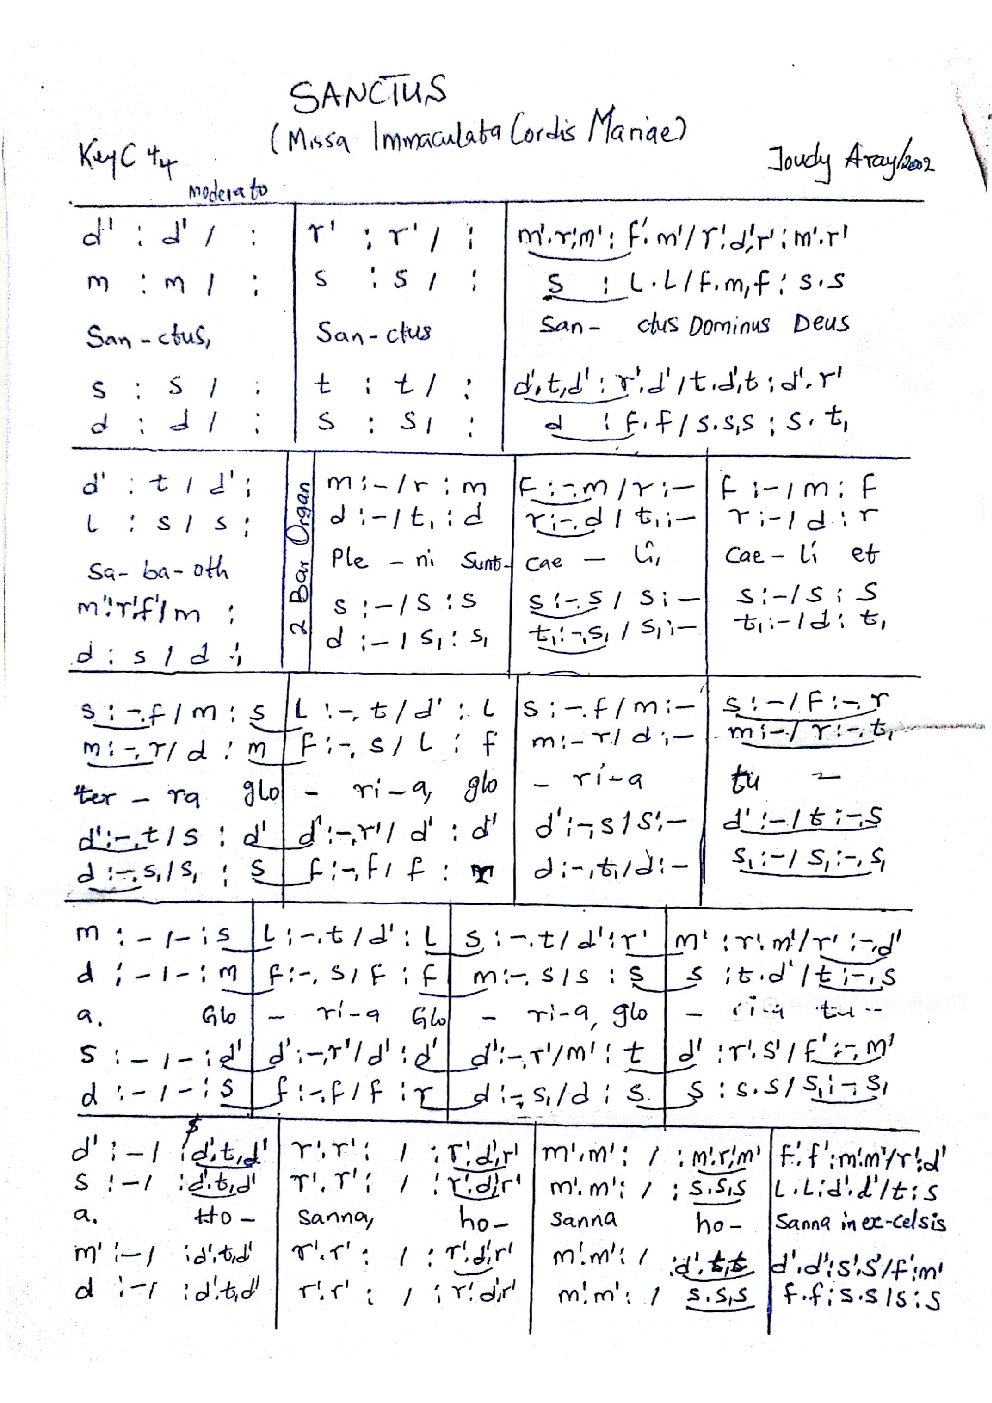 SANCTUS
(Missa Immaculata Cordis Mariae)
Key C 4/4
Joudy Aray/2002
moderato
d' : d' / : | r' : r' / : | m'.r',m' : f'.m' / r'.d',r' : m'.r'
m : m / : | s : s / : | s : l.l / f.m,f : s.s
San-ctus, | San-ctus | San- ctus Dominus Deus
s : s / : | t : t / : | d'.t,d' : r'.d' / t.d',t : d'.r'
d : d / : | s : s / : | d : f.f / s.s,s : s.t,
d' : t / d' : | 2 Bar Organ | m : - / r : m | f : -.m / r : - | f : - / m : f
l : s / s : | d : - / t, : d | r : -.d / t, : - | r : - / d : r
Sa-ba-oth | Ple - ni Sunt- | cae - li, | cae - li et
m'.r'.f' / m : | s : - / s : s | s : -.s / s : - | s : - / s : s
d : s / d : | d : - / s, : s, | t, : -.s, / s, : - | t, : - / d : t,
s : -.f / m : s | l : -.t / d' : l | s : -.f / m : - | s : - / f : -.r
m : -.r / d : m | f : -.s / l : f | m : - r / d : - | m : - / r : -.t,
ter - ra glo | - ri-a, glo | - ri-a | tu -
d' : -.t / s : d' | d' : -.r' / d' : d' | d' : -.s / s : - | d' : - / t : -.s
d : -.s, / s, : s | f : -.f / f : r | d : -.t, / d : - | s, : - / s, : -.s,
m : - / - : s | l : -.t / d' : l | s : -.t / d' : r' | m' : r'.m' / r' : -.d'
d : - / - : m | f : -.s / f : f | m : -.s / s : s | s : t.d' / t : -.s
a. Glo | - ri-a Glo | - ri-a, glo | - ri-a tu --
s : - / - : d' | d' : -.r' / d' : d' | d' : -.r' / m' : t | d' : r'.s' / f' : -.m'
d : - / - : s | f : -.f / f : r | d : -.s, / d : s | s : s.s / s, : -.s,
d' : - / : d'.t,d' | r'.r' : / : r'.d',r' | m'.m' : / : m'.r',m' | f'.f' : m'.m' / r' : d'
s : - / : d'.t,d' | r'.r' : / : r'.d',r' | m'.m' : / : s.s,s | l.l : d'.d' / t : s
a. Ho- | sanna, ho- | sanna ho- | sanna in ex-celsis
m' : - / : d'.t,d' | r'.r' : / : r'.d',r' | m'.m' : / : d'.t,t | d'.d' : s'.s' / f' : m'
d : - / : d'.t,d' | r'.r' : / : r'.d',r' | m'.m' : / s.s,s | f.f : s.s / s : s